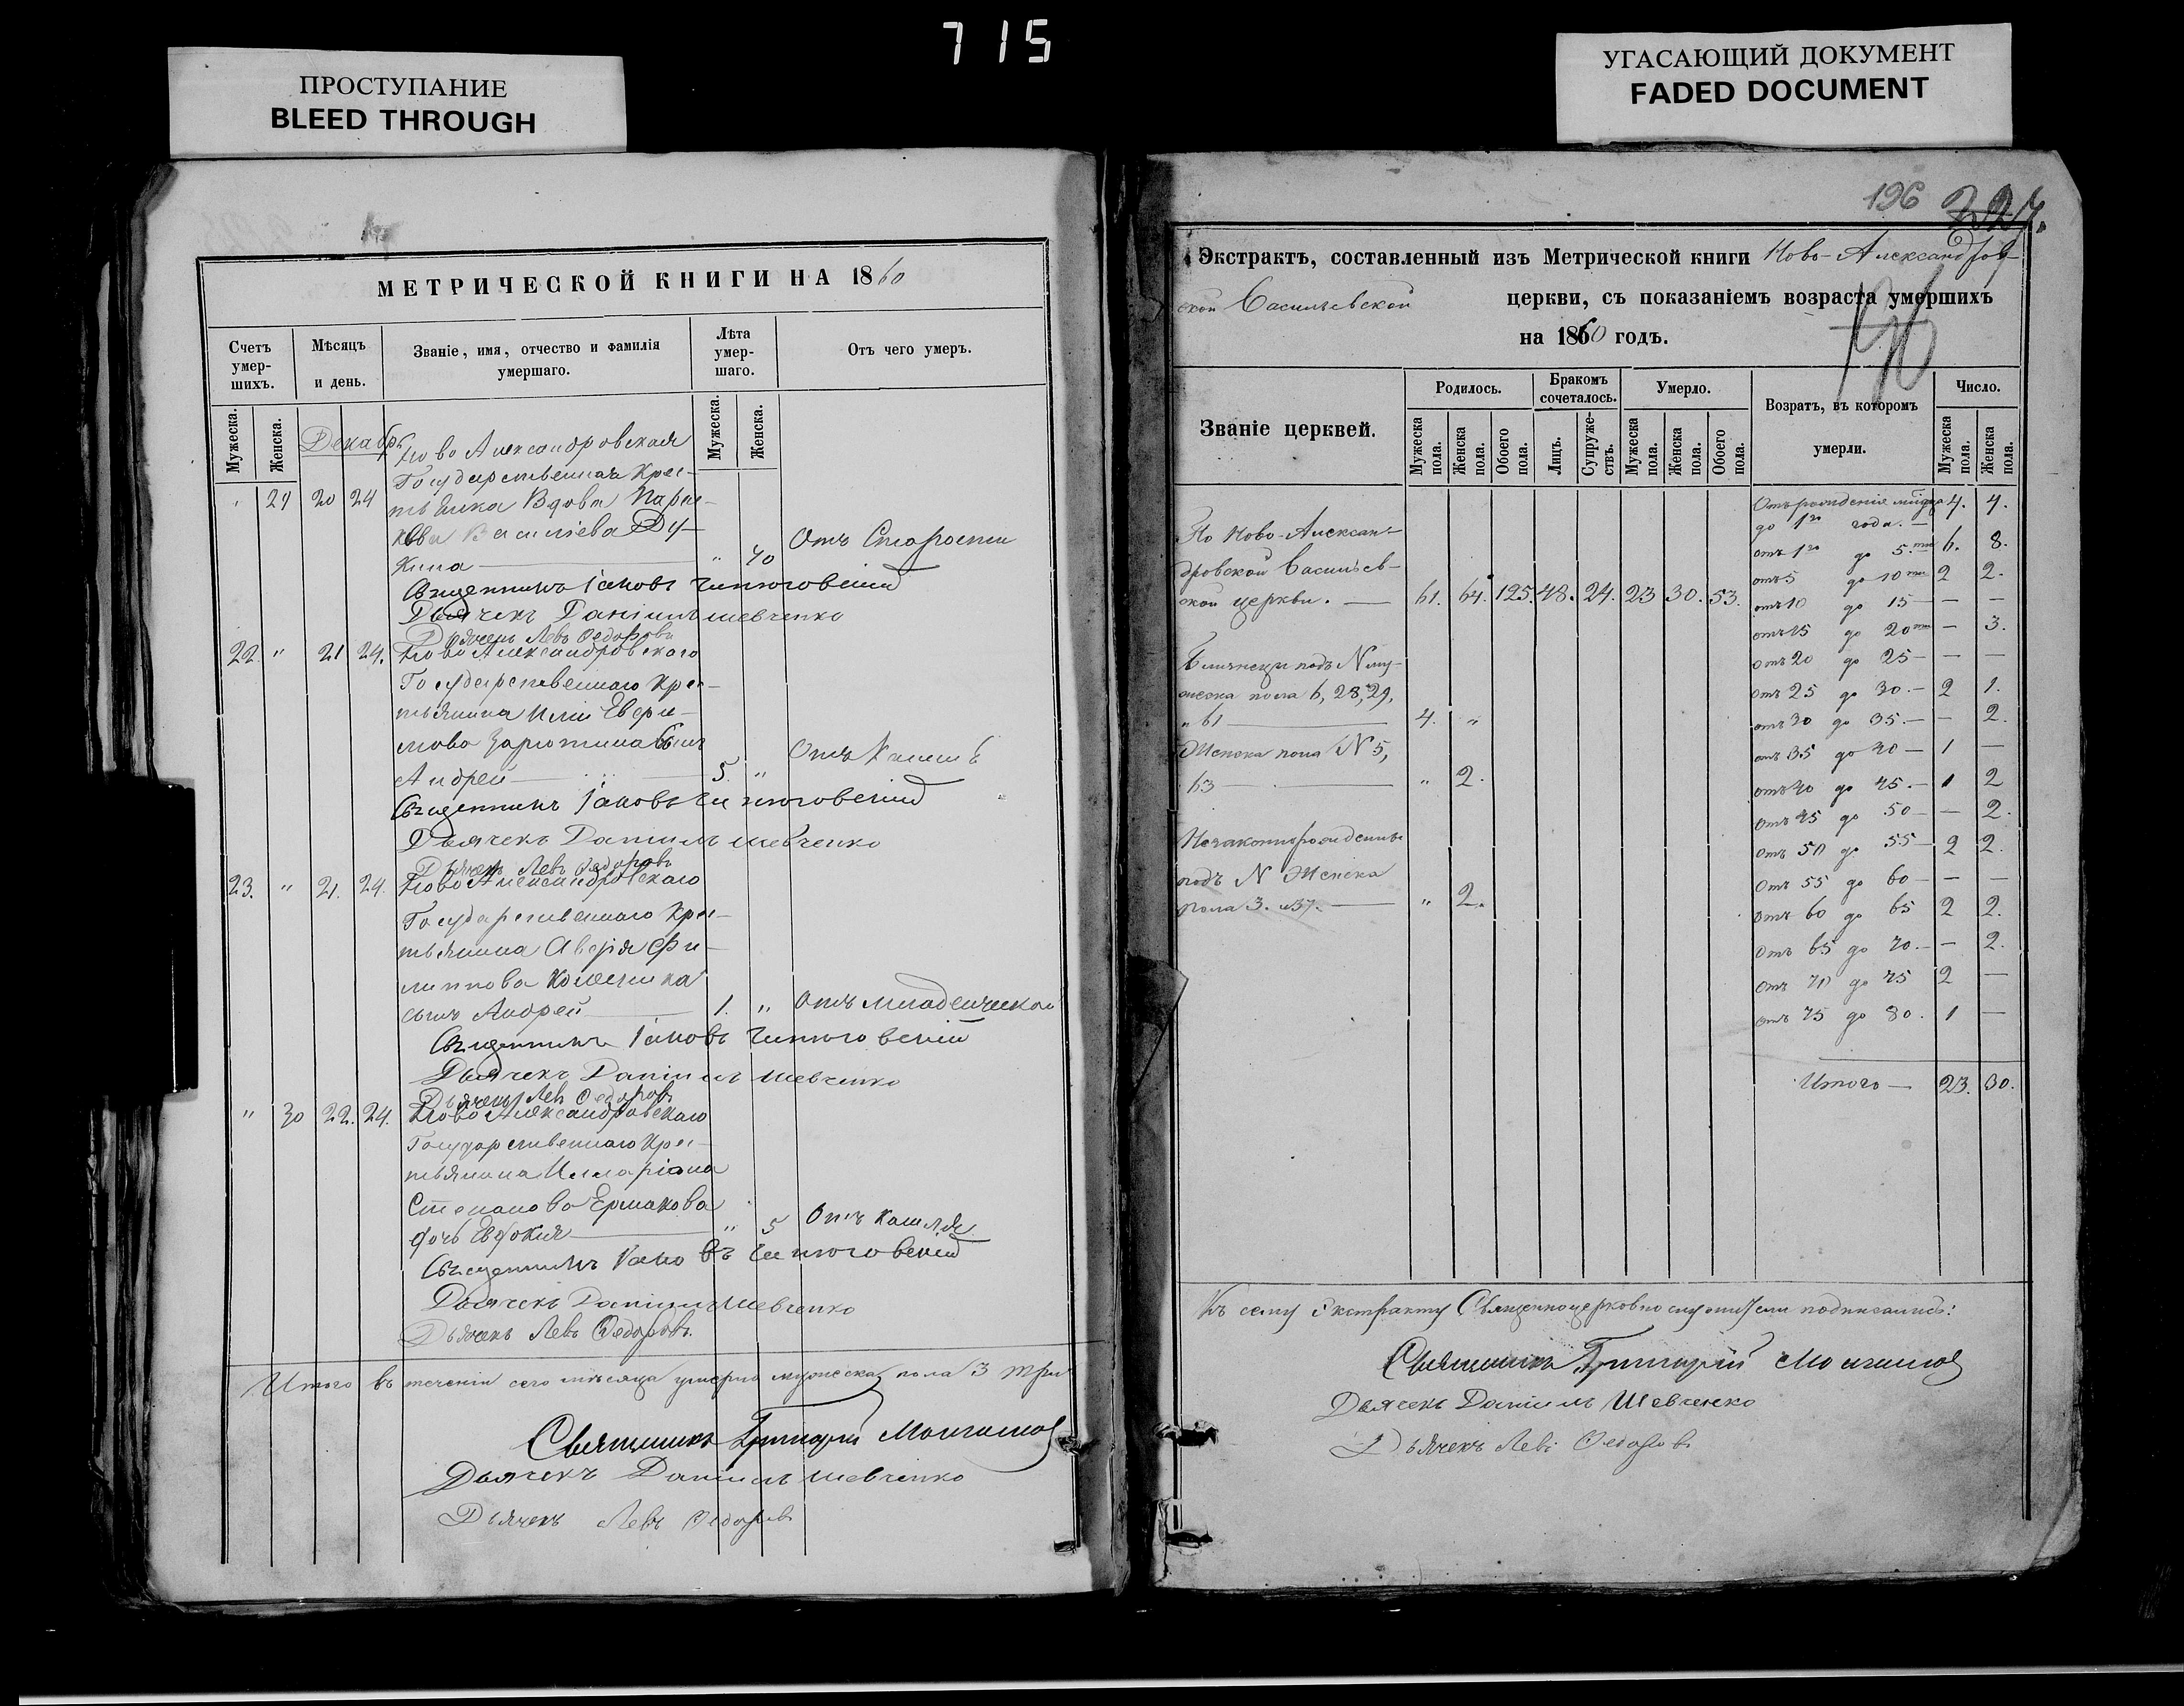 715
ПРОСТУПАНИЕ
BLEED THROUGH
УГАСАЮЩИЙ ДОКУМЕНТ
FADED DOCUMENT
МЕТРИЧЕСКОЙ КНИГИ НА 1860
Счетъ умер-шихъ.
Мѣсяцъ и день.
Званіе, имя, отчество и фамилія умершаго.
Лѣта умер-шаго.
Отъ чего умеръ.
Мужеска. Женска.
Мужеска. Женска.
Декабрь
Ново Александровская
Государственная Крес-
" 29 20 24 тьянка Вдова
Васильева Ду-
Отъ Старости
кина " 70
Священникъ Іаковъ
Дьячекъ Даніилъ Шевченко
Дьячекъ Левъ Федоровъ
22. " 21 24. Ново Александровскаго
Государственнаго Крес-
тьянина
сынъ
Отъ Кашля
Андрей 5. "
Священникъ Іаковъ
Дьячекъ Даніилъ Шевченко
Дьячекъ Левъ Федоровъ
23. " 21. 24. Ново Александровскаго
Государственнаго Крес-
тьянина Аверія Фи-
липпова
сынъ Андрей 1. " Отъ младенческой
Священникъ Іаковъ
Дьячекъ Даніилъ Шевченко
Дьячекъ Левъ Федоровъ
" 30 22. 24. Ново Александровскаго
Государственнаго Крес-
тьянина Иларіона
Степанова Ермакова
дочь Евдокия " 5 Отъ кашля
Священникъ Іаковъ
Дьячекъ Даніилъ Шевченко
Дьячекъ Левъ Федоровъ.
Итого въ теченіи сего мѣсяца умерло мужеска пола 3 три
Священникъ Григорій
Дьячекъ Даніилъ Шевченко
Дьячекъ Левъ Федоровъ
196
Экстрактъ, составленный изъ Метрической книги Ново-Александров-
ской Васильевской церкви, съ показаніемъ возраста умершихъ
на 1860 годъ.
Званіе церквей.
Родилось.
Бракомъ сочеталось.
Умерло.
Возратъ, въ которомъ умерли.
Число.
Мужеска пола. Женска пола. Обоего пола. Лицъ. Супруже-ствъ. Мужеска пола. Женска пола. Обоего пола. Мужеска пола. Женска пола.
По Ново-Алексан-
дровской Васильев-
ской церкви. — 61. 64. 125. 48. 24. 23 30. 53.
Близнецы подъ N му-
жеска пола 6, 28, 29,
и 61 4. "
Женска пола N 5,
63 " 2.
Незаконнорожденные
подъ N Женска
пола 3. и 37. — " 2.
Отъ рожденія
до 1го года. — 4. 4.
отъ 1го до 5. ти 6. 8.
отъ 5 до 10 ти 2 2.
отъ 10 до 15 — — —
отъ 15 до 20 ти — 3.
отъ 20 до 25 — — —
отъ 25 до 30. — 2 1.
отъ 30 до 35. — — 2.
отъ 35 до 40 — 1 —
отъ 40 до 45. — 1 2
отъ 45 до 50 — — 2.
отъ 50 до 55 — 2 2.
отъ 55 до 60 — — —
отъ 60 до 65 2 2.
отъ 65 до 70. — — 2.
отъ 70 до 75 2 —
отъ 75 до 80. 1 —
Итого — 23. 30.
Къ сему Экстракту Священноцерковнослужители подписались:
Священникъ Григорій
Дьячекъ Даніилъ Шевченко
Дьячекъ Левъ Федоровъ